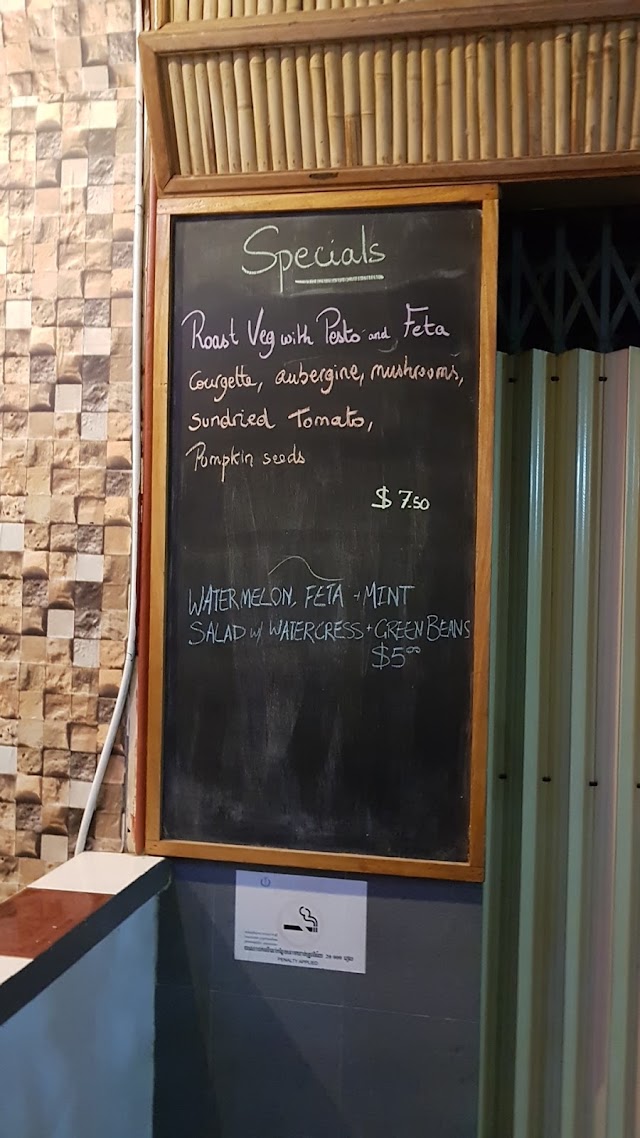 Specials
Roast Veg with Pesto and Feta
Courgette, aubergine, mushrooms,
Sundried Tomato,
Pumpkin seeds
$ 7.50
WATERMELON, FETA + MINT
SALAD w/ WATERCRESS + GREEN BEANS
$5.00
PENALTY APPLIED